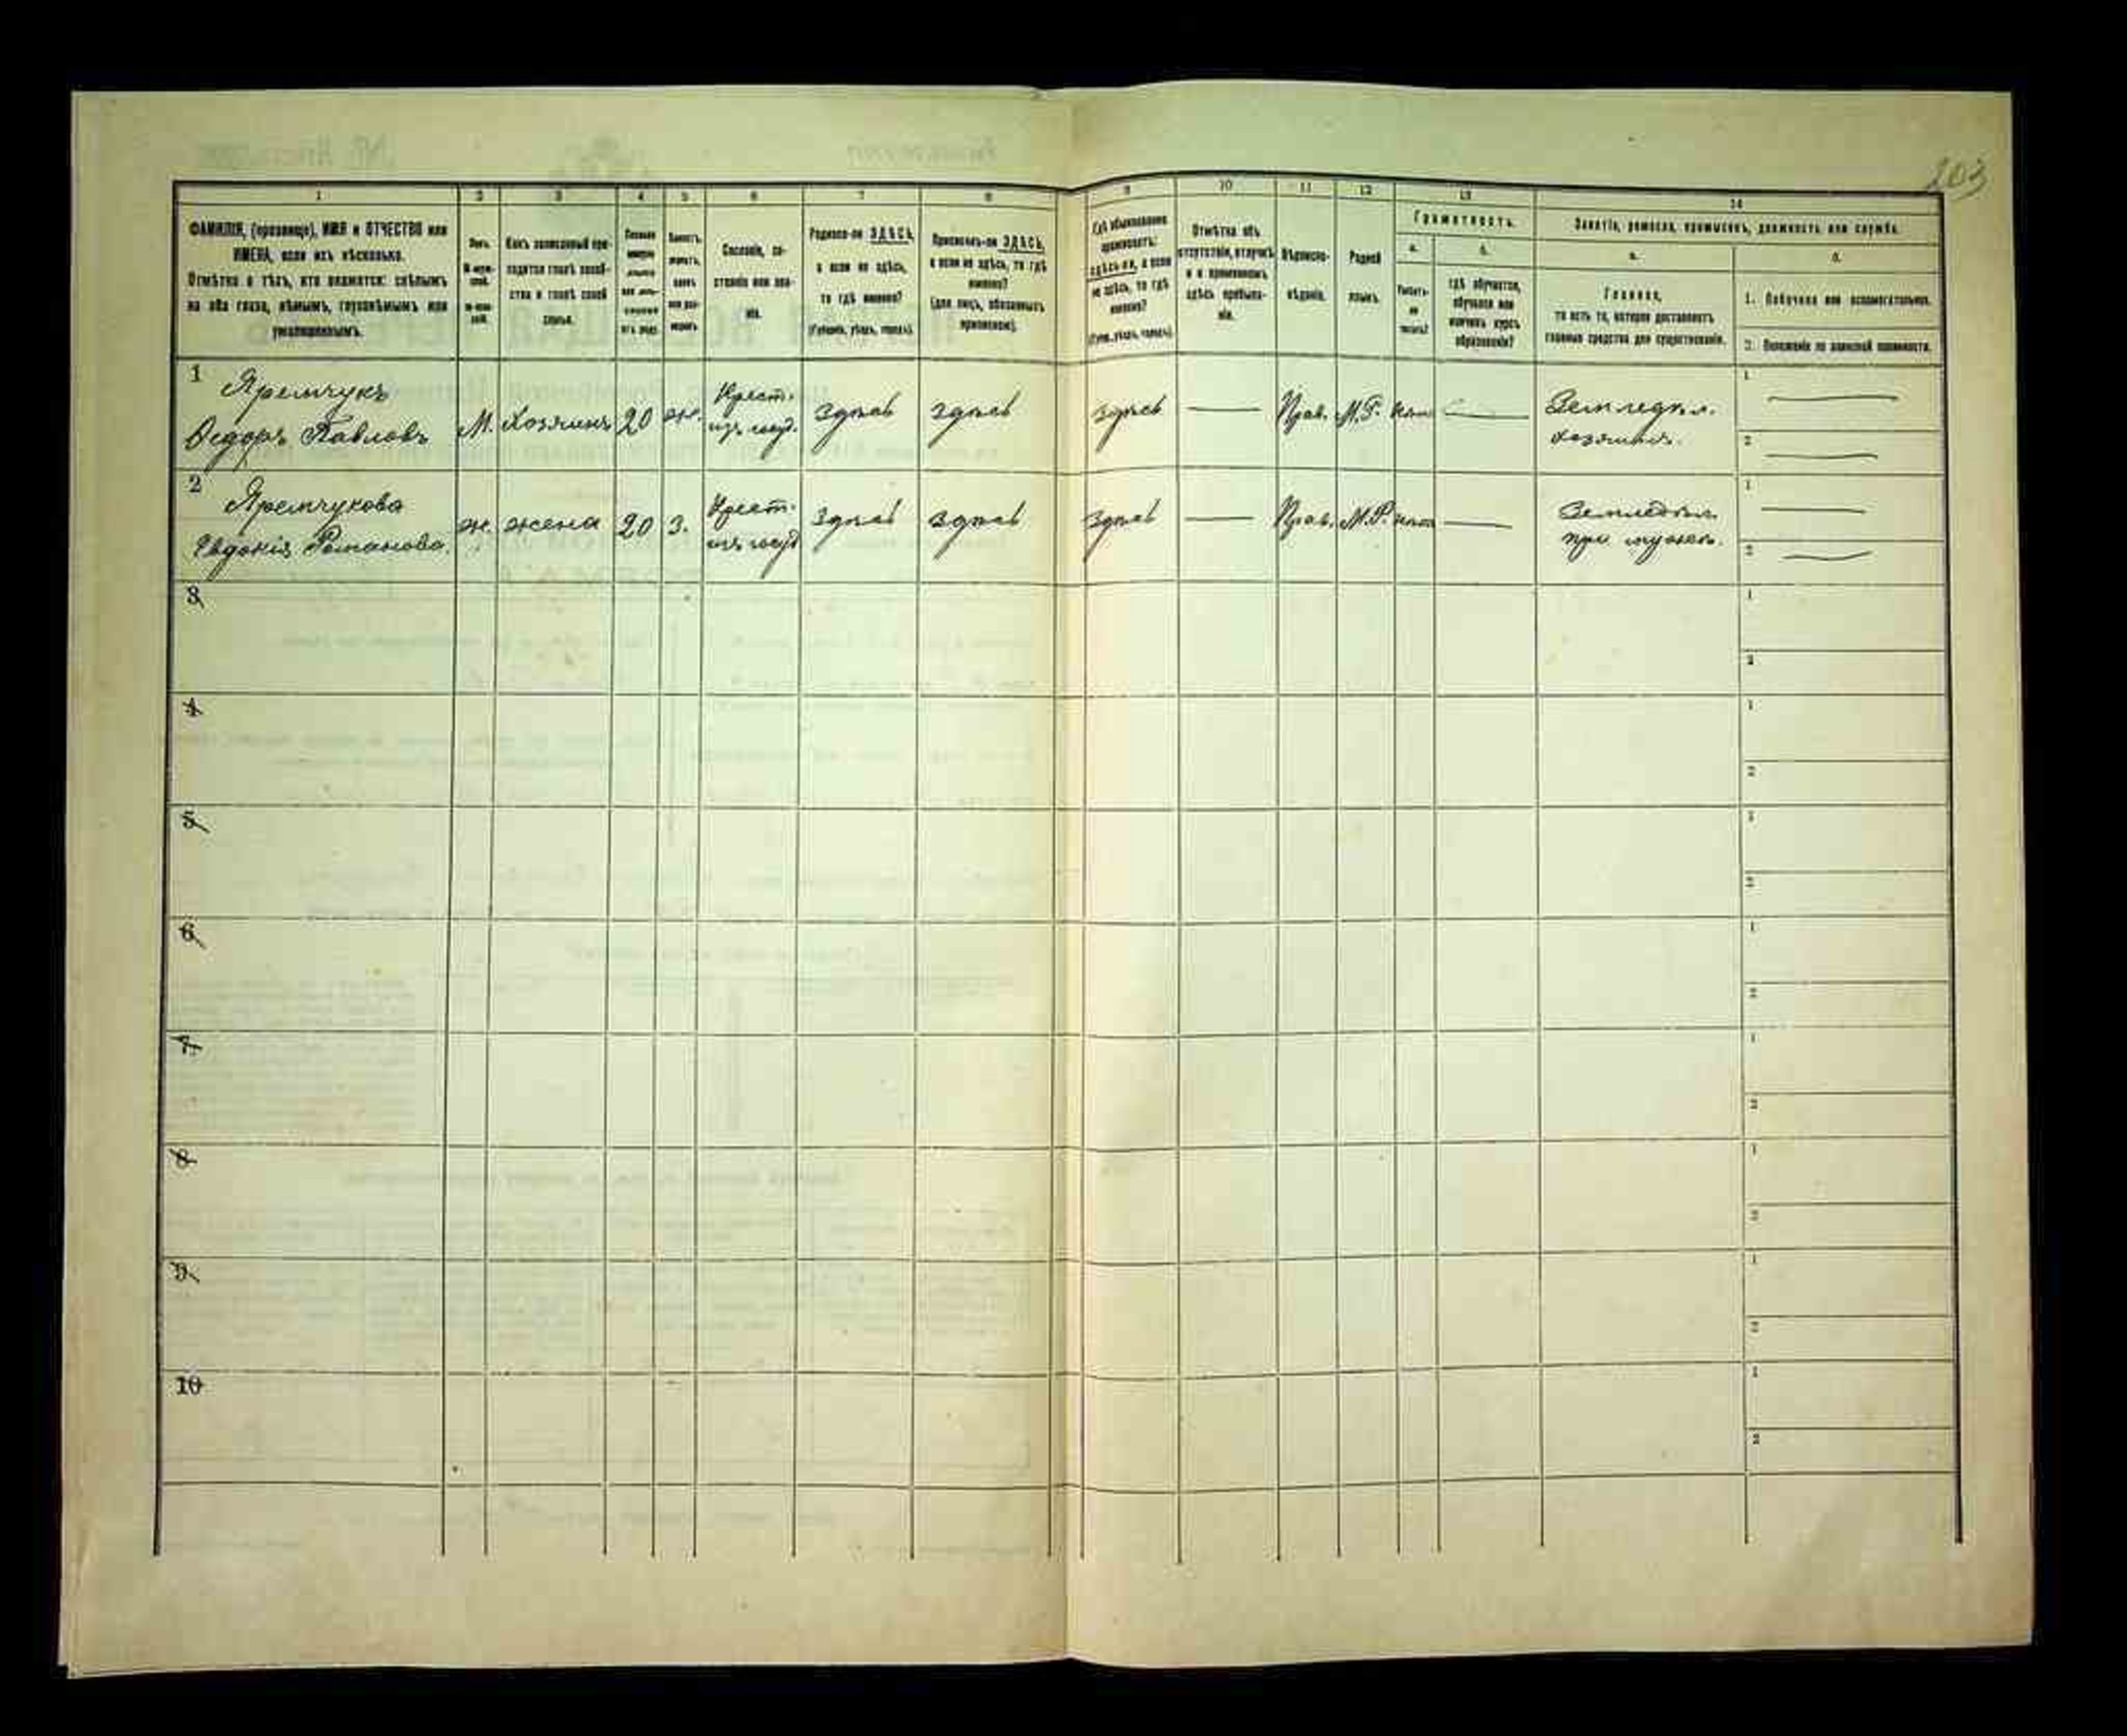 203
1 2 3 4 5 6 7 8 9 10 11 12 13 14
ФАМИЛІЯ, (прозвище), ИМЯ и ОТЧЕСТВО или
ИМЕНА, если ихъ нѣсколько.
Отмѣтка о тѣхъ, кто окажется: слѣпымъ
на оба глаза, нѣмымъ, глухонѣмымъ или
умалишеннымъ.
Полъ.
М-муж-
ской.
Ж-жен-
скій.
Какъ записанный при-
ходится главѣ хозяй-
ства и главѣ своей
семьи.
Сословіе, со-
стояніе или зва-
ніе.
Родился-ли ЗДѢСЬ,
а если не здѣсь,
то гдѣ именно?
(Губернія, уѣздъ, городъ).
Приписанъ-ли ЗДѢСЬ,
а если не здѣсь, то гдѣ
именно?
(для лицъ, обязанныхъ
припискою).
Гдѣ обыкновенно
проживаетъ:
здѣсь-ли, а если
не здѣсь, то гдѣ
именно?
(Губ., уѣздъ, городъ).
Отмѣтка объ
отсутствіи, отлучкѣ
и о временномъ
здѣсь пребыва-
ніи.
Вѣроиспо-
вѣданіе.
Родной
языкъ.
Грамотность.
а.
Умѣетъ-
ли
читать?
б.
гдѣ обучается,
обучался или
кончилъ курсъ
образованія?
Занятіе, ремесло, промыселъ, должность или служба.
а.
Главное,
то есть то, которое доставляетъ
главныя средства для существованія.
б.
1. Побочное или вспомогательное.
2. Положеніе по воинской повинности.
1 Яремчукъ
Ѳедоръ Павловъ
М. Хозяинъ 20 ж. Крест. изъ госуд. здѣсь здѣсь здѣсь — Прав. М.Р. нѣтъ — Земледѣл. хозяинъ. 1 — 2 —
2 Яремчукова
Евдокія Романова.
ж. жена 20 З. Крест. изъ госуд. здѣсь здѣсь здѣсь — Прав. М.Р. нѣтъ — Земледѣл. при мужѣ. 1 — 2 —
3 1
2
4 1
2
5 1
2
6 1
2
7 1
2
8 1
2
9 1
2
10 1
2